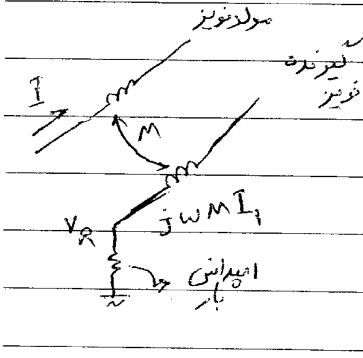 مولد نویز
گیرنده
نویز
I
M
jωMI₁
V_R
امپدانس
بار